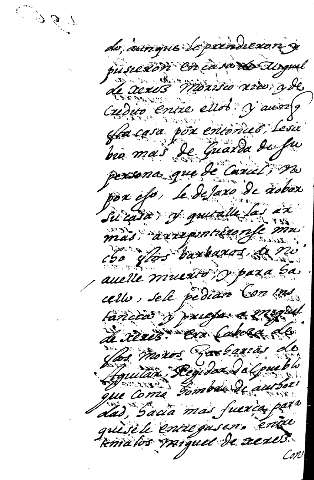 do, aunque le prendieron y
pusieron en casa de Miguel
de xeres Morisco rico, y de
Credito entre ellos: y aunq
esta casa por entonces, le sir
bio mas de Guarda de su
persona que de Carcel; No
por eso, le dejaro de robar
su casa; y quitalle las ar
mas. arrepintieronse mu
cho estos barbaros, de no
avelle muerto; y para ha
cello, se le pedian con ins
tancia y priesa a Miguel
de Xeres. Era Cabeza de
estos Moros Zacharias de
Aguilar, Regidor del pueblo
que como hombre de authori
dad, hacia mas fuerça para
que se le entregasen. entre
Miguel de xeres
Con